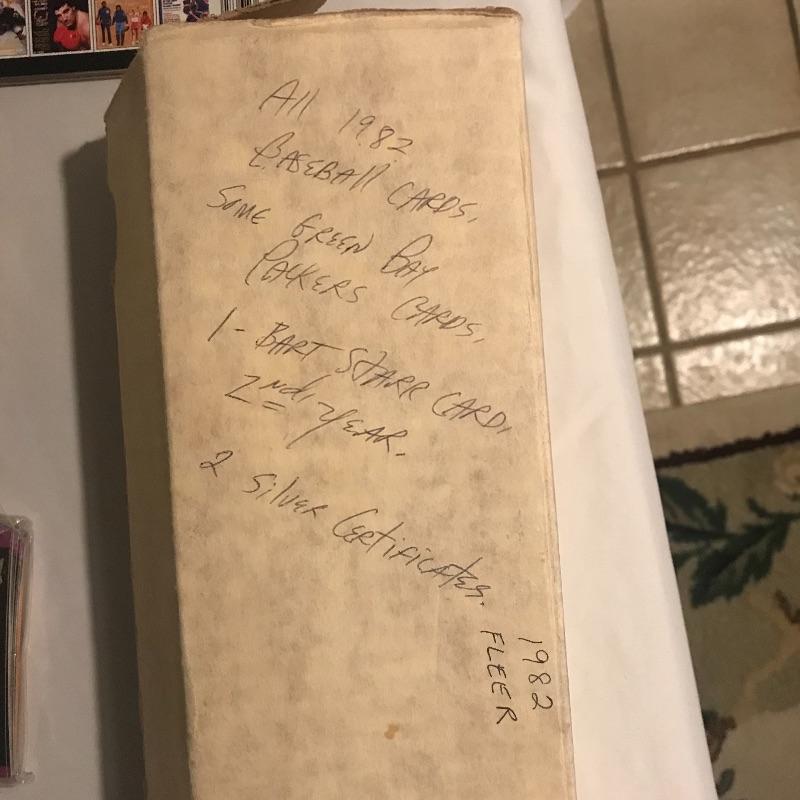 All 1982
BASEBALL CARDS,
SOME GREEN BAY
PACKERS CARDS,
1- BART STARR CARD,
2nd YEAR.
2 Silver Certificates.
1982
FLEER